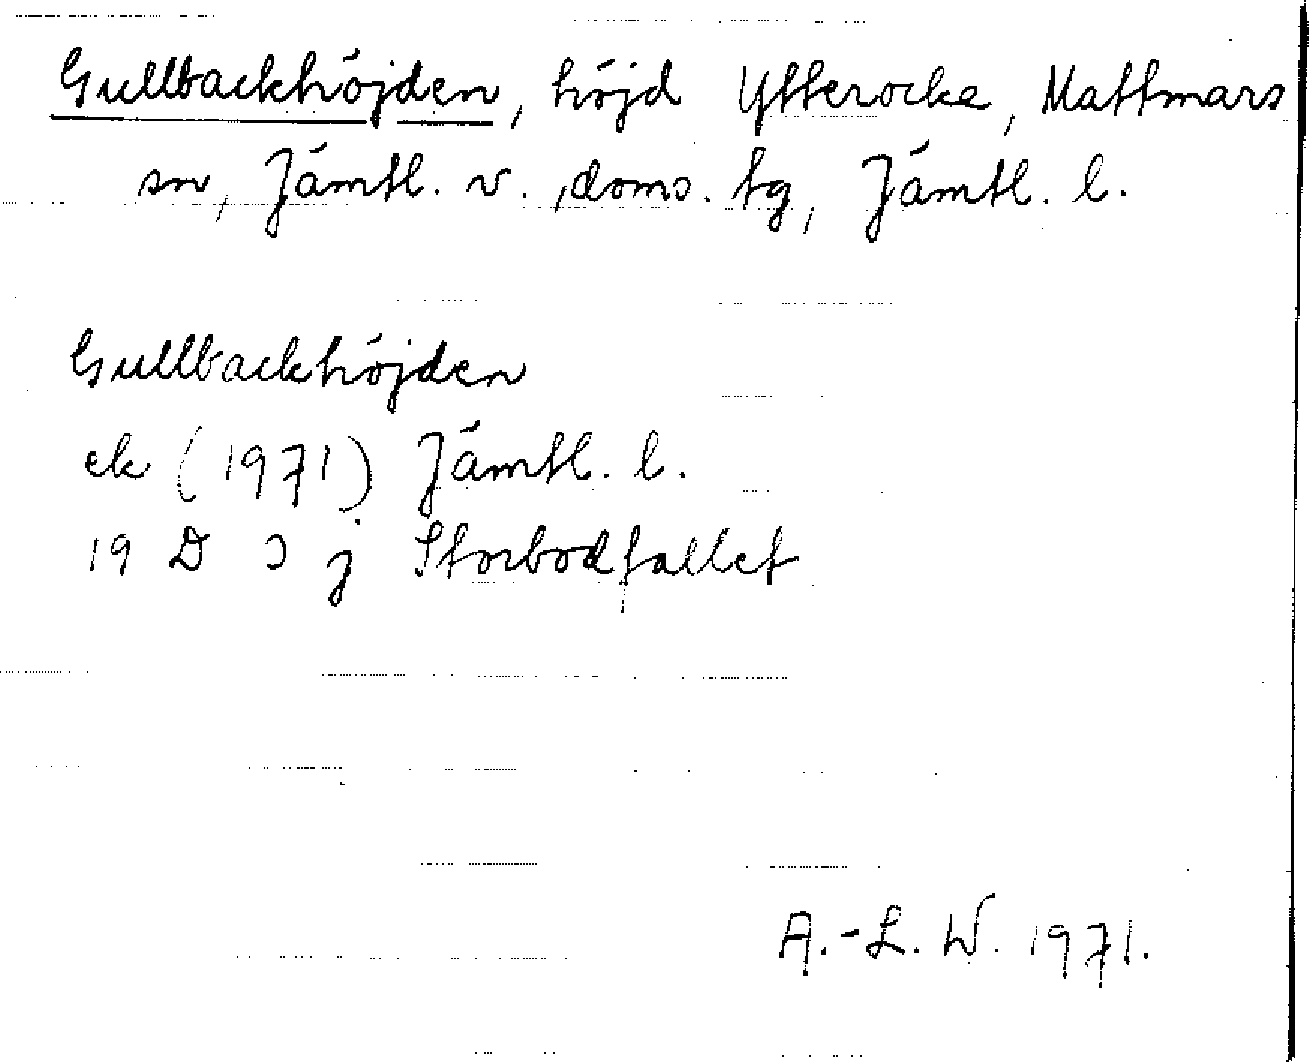 Gullbackhöjden, höjd Ytterocke, Mattmars
sn, Jämtl. v. doms. tg, Jämtl. l.
Gullbackhöjden
ek (1971) Jämtl. l.
19 D j Storbodfallet
A.-L. W. 1971.